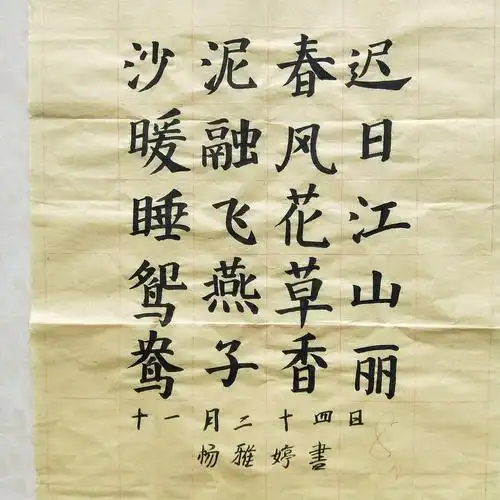 迟日江山丽
春风花草香
泥融飞燕子
沙暖睡鸳鸯
十一月二十四日
杨雅婷書